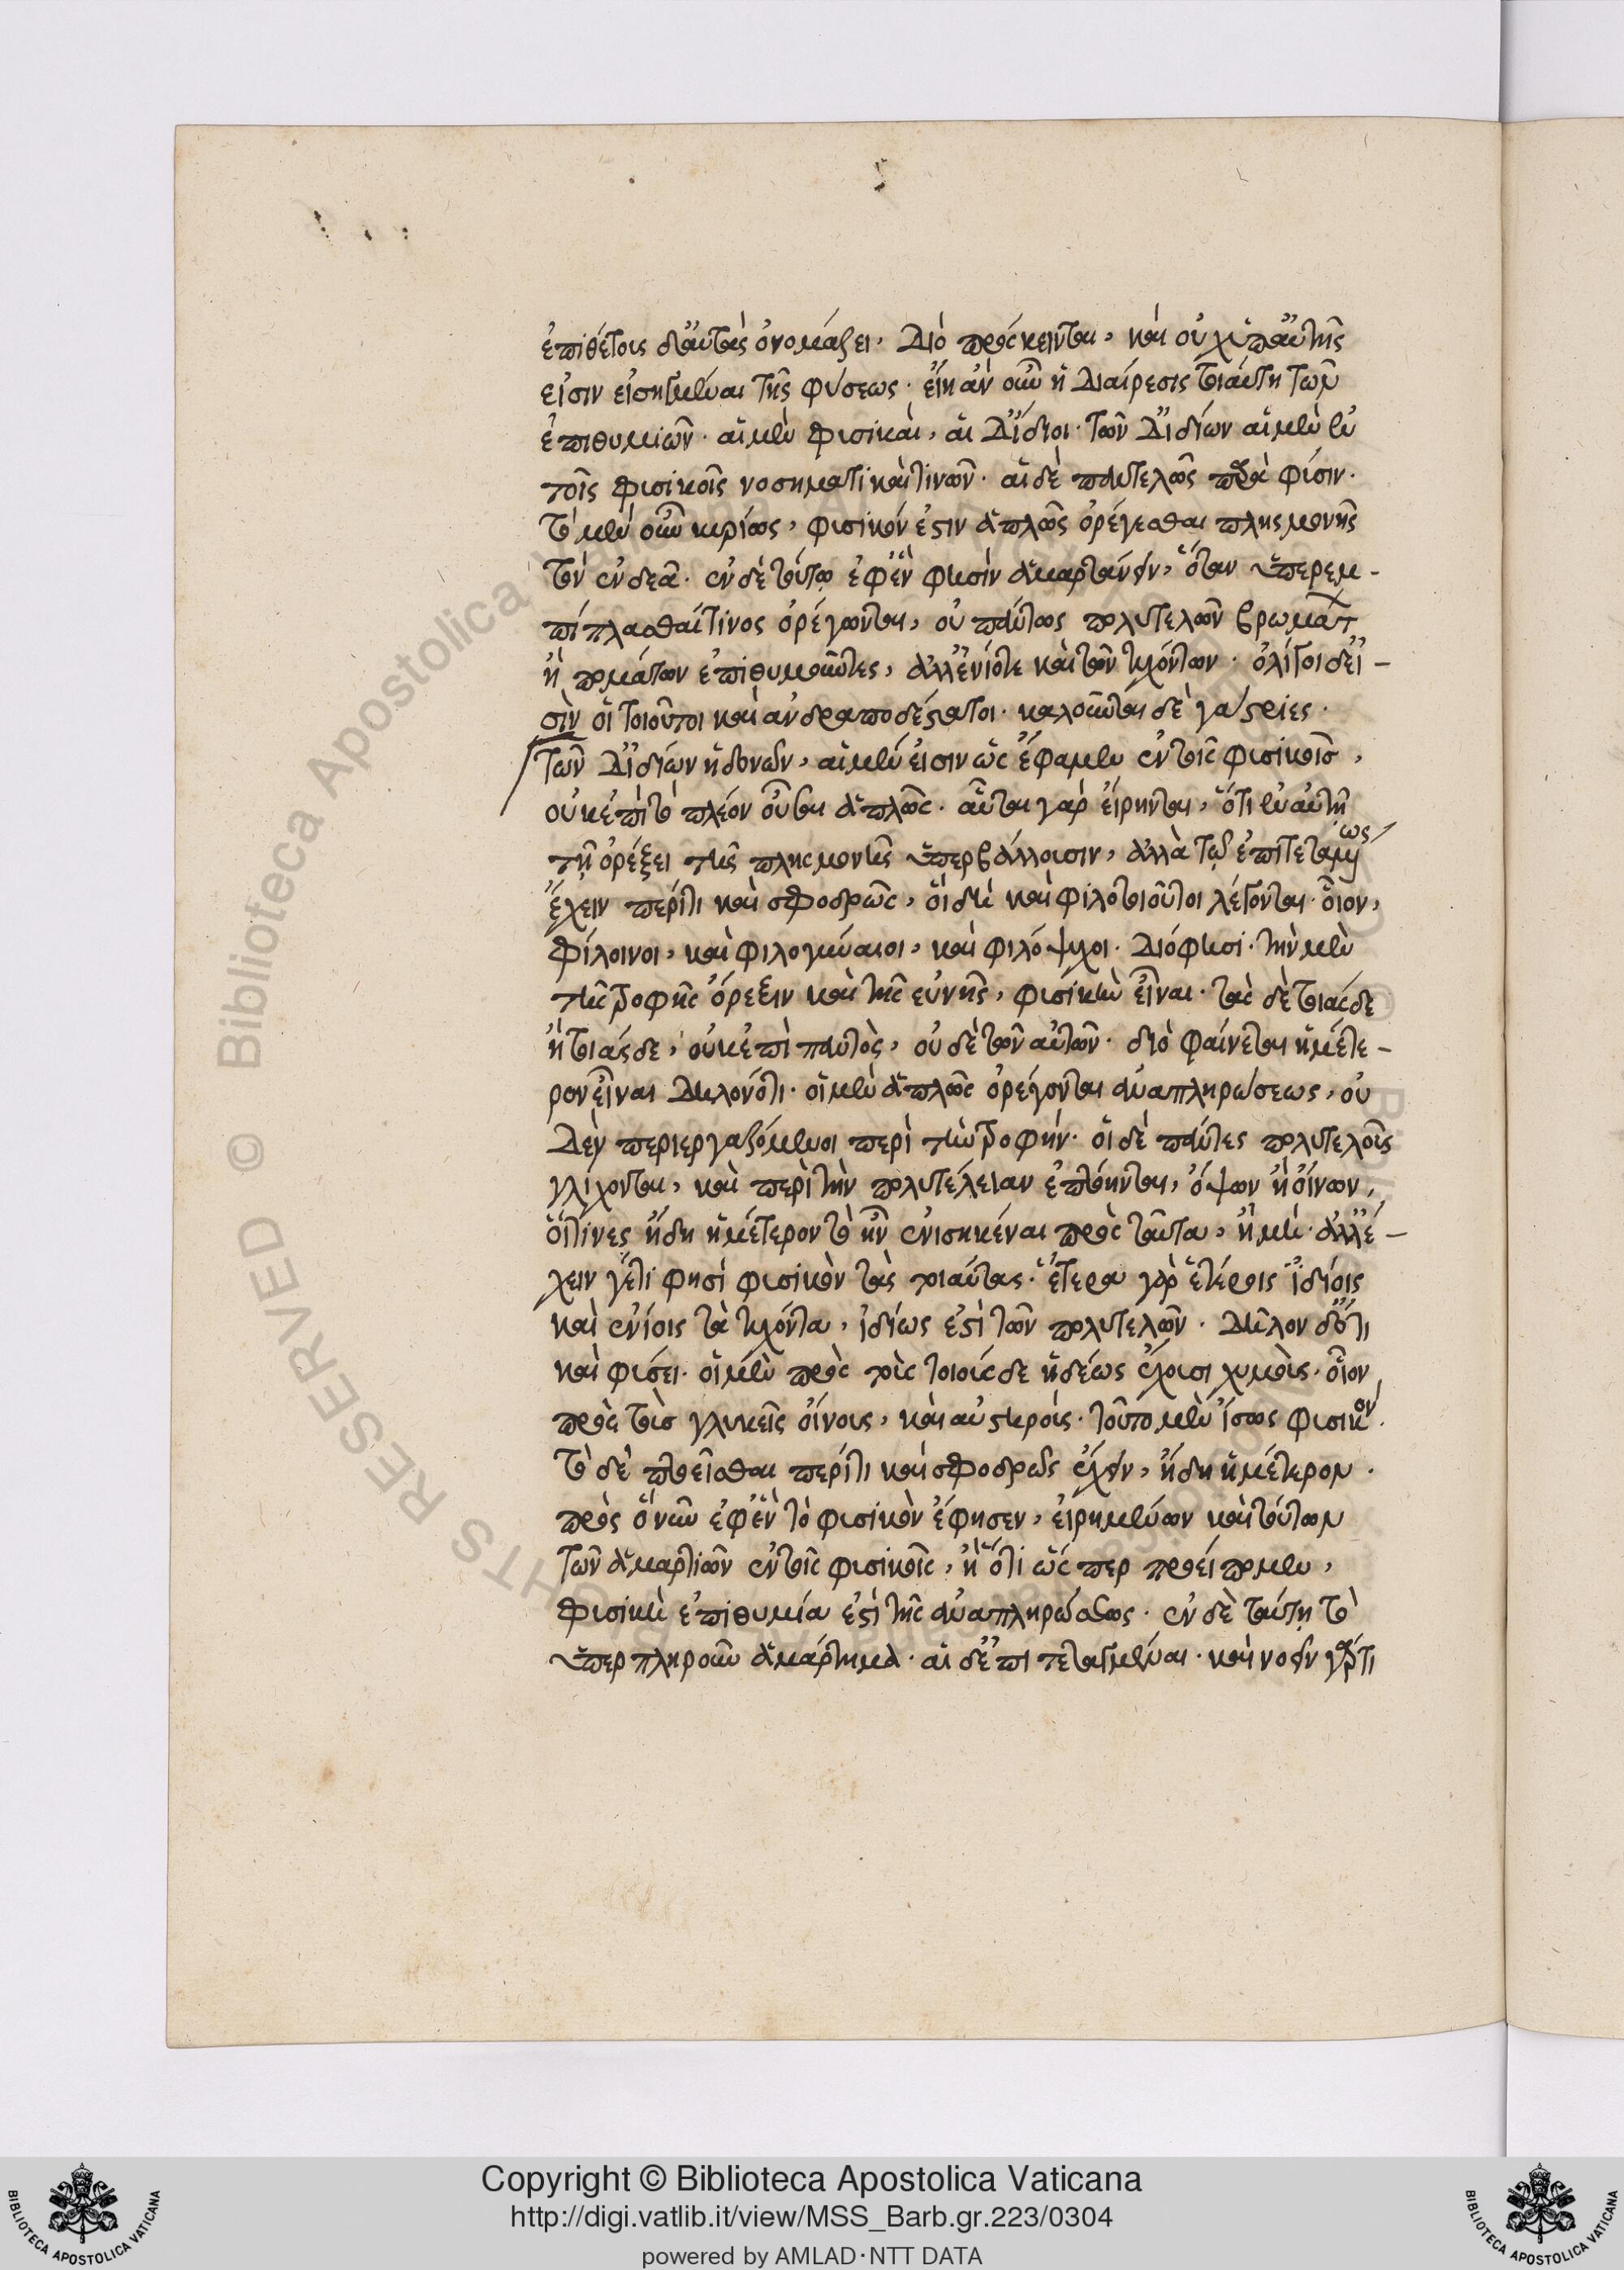 ἐπιθέτοις δι' αὐτὰς ὀνομάζει. Διὸ πρόσκεινται, καὶ οὐχ ὑπ' αὐτῆς
εἰσιν εἰσηγμέναι τῆς φύσεως. εἴη ἂν οὖν ἡ Διαίρεσις τοιαύτη τῶν
ἐπιθυμιῶν. αἱ μὲν φυσικαὶ, αἱ Δ' ἴδιοι. τῶν Δ' ἰδίων αἱ μὲν ἐν
τοῖς φυσικοῖς νοσηματικαὶ τινῶν. αἱ δὲ παντελῶς παρὰ φύσιν.
Τὸ μὲν οὖν κυρίως, φυσικόν ἐστιν ἁπλῶς ὀρέγεσθαι πλησμονῆς
τὸν ἐνδεᾶ. ἐν δὲ τούτῳ ἐφ' ἓν φησὶν ἁμαρτάνειν, ὅταν ὑπερεμ-
πίπλασθαί τινος ὀρέγωνται, οὐ πάντως πολυτελῶν βρωμάτ
ἢ πομάτων ἐπιθυμοῦντες, ἀλλ' ἐνίοτε καὶ τῶν τυχόντων. ὀλίγοι δ' εἰ-
σὶν οἱ τοιοῦτοι καὶ ἀνδραποδέστατοι. καλοῦνται δὲ γαστρίες.
Τῶν Δ' ἰδίων ἡδονῶν, αἱ μέν εἰσιν ὡς ἔφαμεν ἐν τοῖς φυσικοῖς,
οὐκ ἐπὶ τὸ πλέον οὗται ἁπλῶς. αὗται γὰρ εἴρηνται, ὅτι ἐν αὐτῇ
τῇ ὀρέξει τῆς πλησμονῆς ὑπερβάλλουσιν, ἀλλὰ τῷ ἐπιτεταμένως
ἔχειν περί τι καὶ σφοδρῶς, οἳ δὴ καὶ φιλοτοιοῦτοι λέγονται. οἷον,
Φίλοινοι, καὶ φιλογύναιοι, καὶ φιλόψυχοι. Διό φησι. τὴν μὲν
τῆς τροφῆς ὄρεξιν καὶ τῆς εὐνῆς, φυσικὴν εἶναι. τὰς δὲ τοιᾶσδε
ἢ τοιᾶσδε, οὐκ ἐπὶ παντὸς, οὐδὲ τῶν αὐτῶν. διὸ φαίνεται ἡμέτε-
ρον εἶναι Δηλονότι. οἱ μὲν ἁπλῶς ὀρέγονται ἀναπληρώσεως, οὐ
Δὲν περιεργαζόμενοι περὶ τὴν τροφήν. οἱ δὲ πάντες πολυτελοῦς
γλίχονται, καὶ περὶ τὴν πολυτέλειαν ἐπτόηνται, ὄψων ἢ οἴνων,
οἵτινες ἤδη ἡμέτερον τὸ ἢν ἐνισηκέναι πρὸς ταῦτα, ἢ μή. ἀλλ' ἔ-
χειν γέ τι φησὶ φυσικὸν τὰς τοιαύτας. ἕτερα γὰρ ἑτέροις ἰδίοις
καὶ ἐνίοις τὰ τυχόντα, ἰδίως ἐστὶ τῶν πολυτελῶν. Δῆλον δ' ὅτι
καὶ φύσει. οἱ μὲν πρὸς τοὺς τοιούσδε ἡδέως ἔχουσι χυμοὺς. οἷον
πρὸς τοὺς γλυκεῖς οἴνους, καὶ αὐστηροὺς. τοῦτο μὲν ἴσως φυσικόν.
Τὸ δὲ πτοεῖσθαι περί τι καὶ σφοδρῶς ἔχειν, ἤδη ἡμέτερον.
πρὸς ὃ νῦν ἐφ' ἓν τὸ φυσικὸν ἔφησεν, εἰρημένων καὶ τούτων
τῶν ἁμαρτιῶν ἐν τοῖς φυσικοῖς, ἢ ὅτι ὥς περ προείπομεν,
Φυσικὴ ἐπιθυμία ἐστὶ τῆς ἀναπληρώσεως. ἐν δὲ ταύτῃ τὸ
ὑπερπληροῦν ἁμάρτημα. αἱ δ' ἐπιτεταγμέναι. καὶ νοσεῖν γάρ τι
Copyright © Biblioteca Apostolica Vaticana
http://digi.vatlib.it/view/MSS_Barb.gr.223/0304
powered by AMLAD·NTT DATA